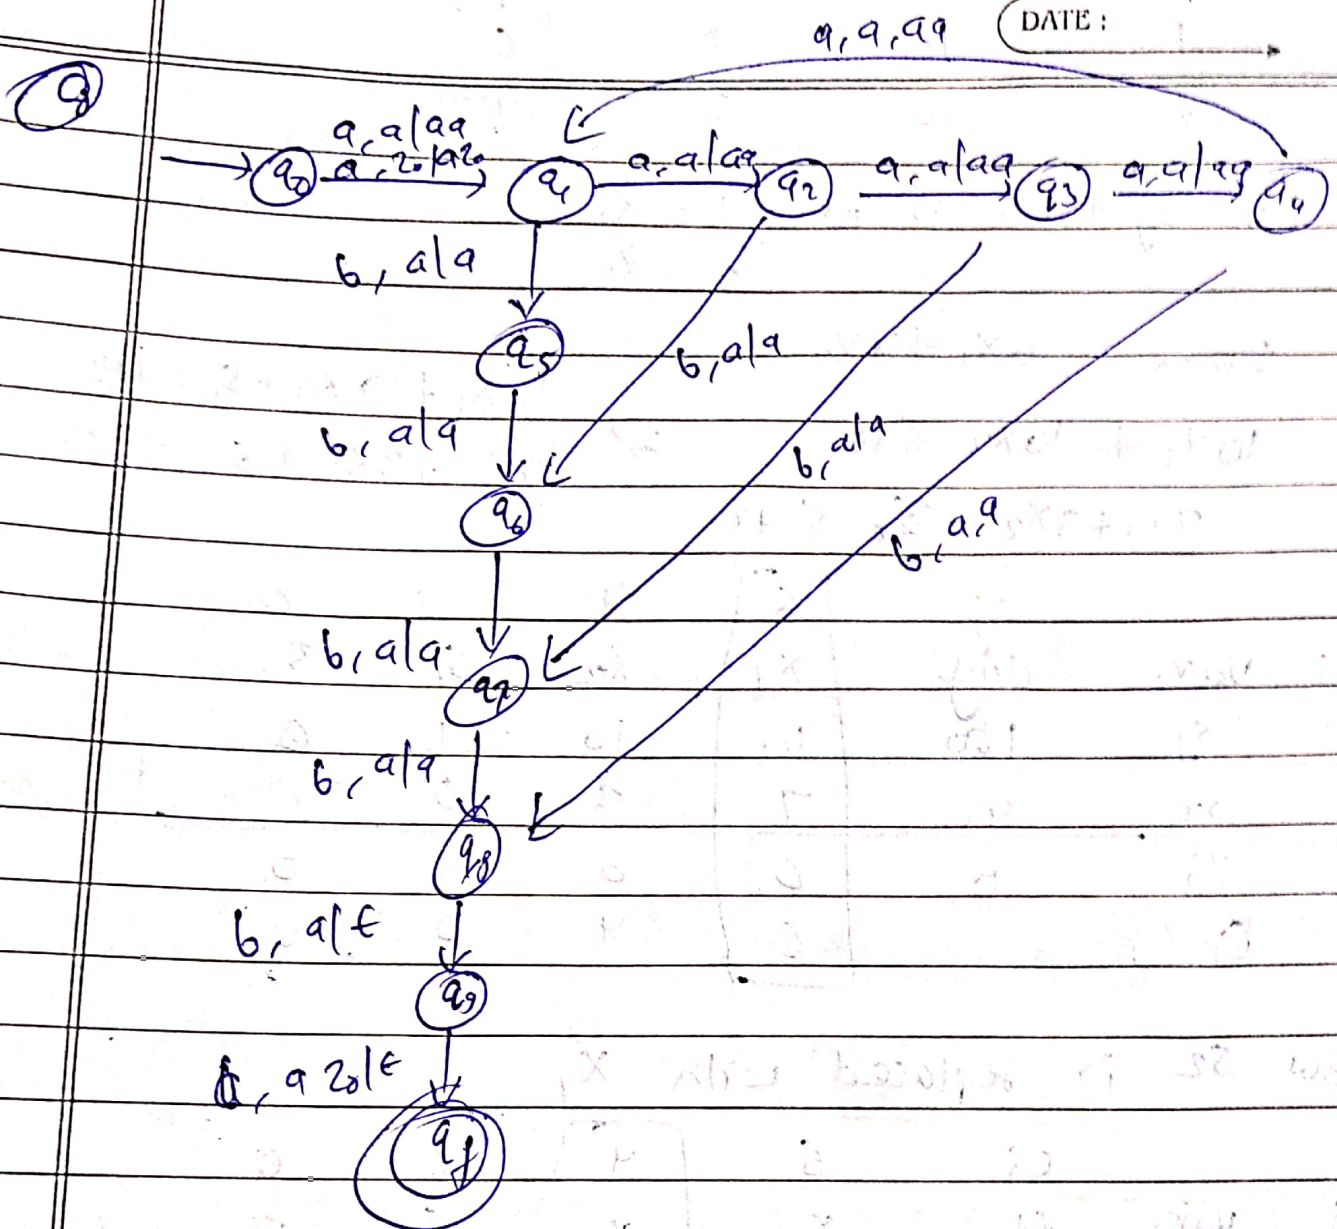 DATE :
a, a, aa
Q
a, a|aa
q0 a, z0|az0 q1 a, a|aa q2 a, a|aa q3 a, a|aa q4
b, a|a
q5
b, a|a
b, a|a
b, a|a
q6
b, a, a
b, a|a
q7
b, a|a
q8
b, a|ε
q9
, a z0|ε
qf